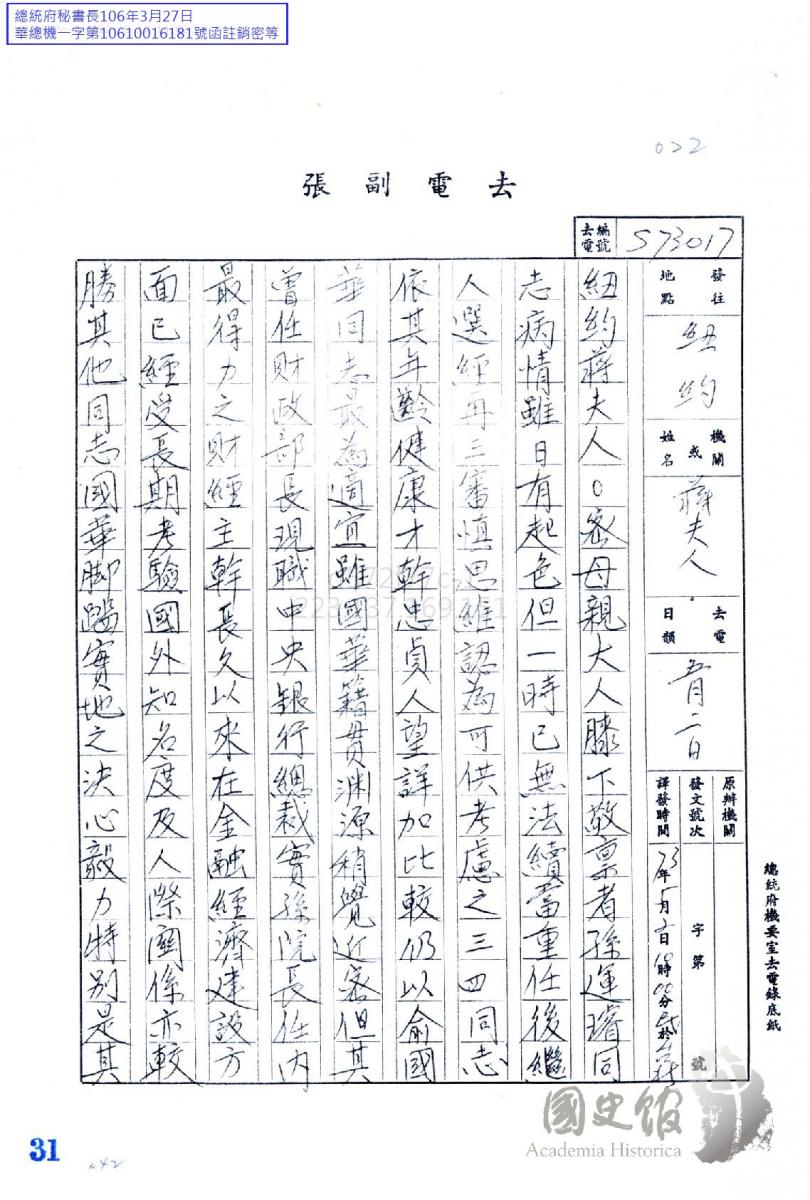 總統府秘書長106年3月27日
華總機一字第10610016181號函註銷密等
022
去電副張
去電編號
573017
發往地點
紐約
機關或姓名
蔣夫人
去電日韻
五月二日
原辦機關
發文號次
字第 號
譯發時間
73年5月2日10時00分
總統府機要室去電錄底紙
紐約蔣夫人0密母親大人膝下敬稟者孫運璿同
志病情雖日有起色但一時已無法續當重任後繼
人選經再三審慎思維認為可供考慮之三四同志
依其年齡健康才幹忠貞人望詳加比較仍以俞國
華同志最為適宜雖國華籍貫淵源稍覺近密但其
曾任財政部長現職中央銀行總裁實孫院長任內
最得力之財經主幹長久以來在金融經濟建設方
面已經受長期考驗國外知名度及人際關係亦較
勝其他同志國華腳踏實地之決心毅力特別是其
國史館
Academia Historica
31
042